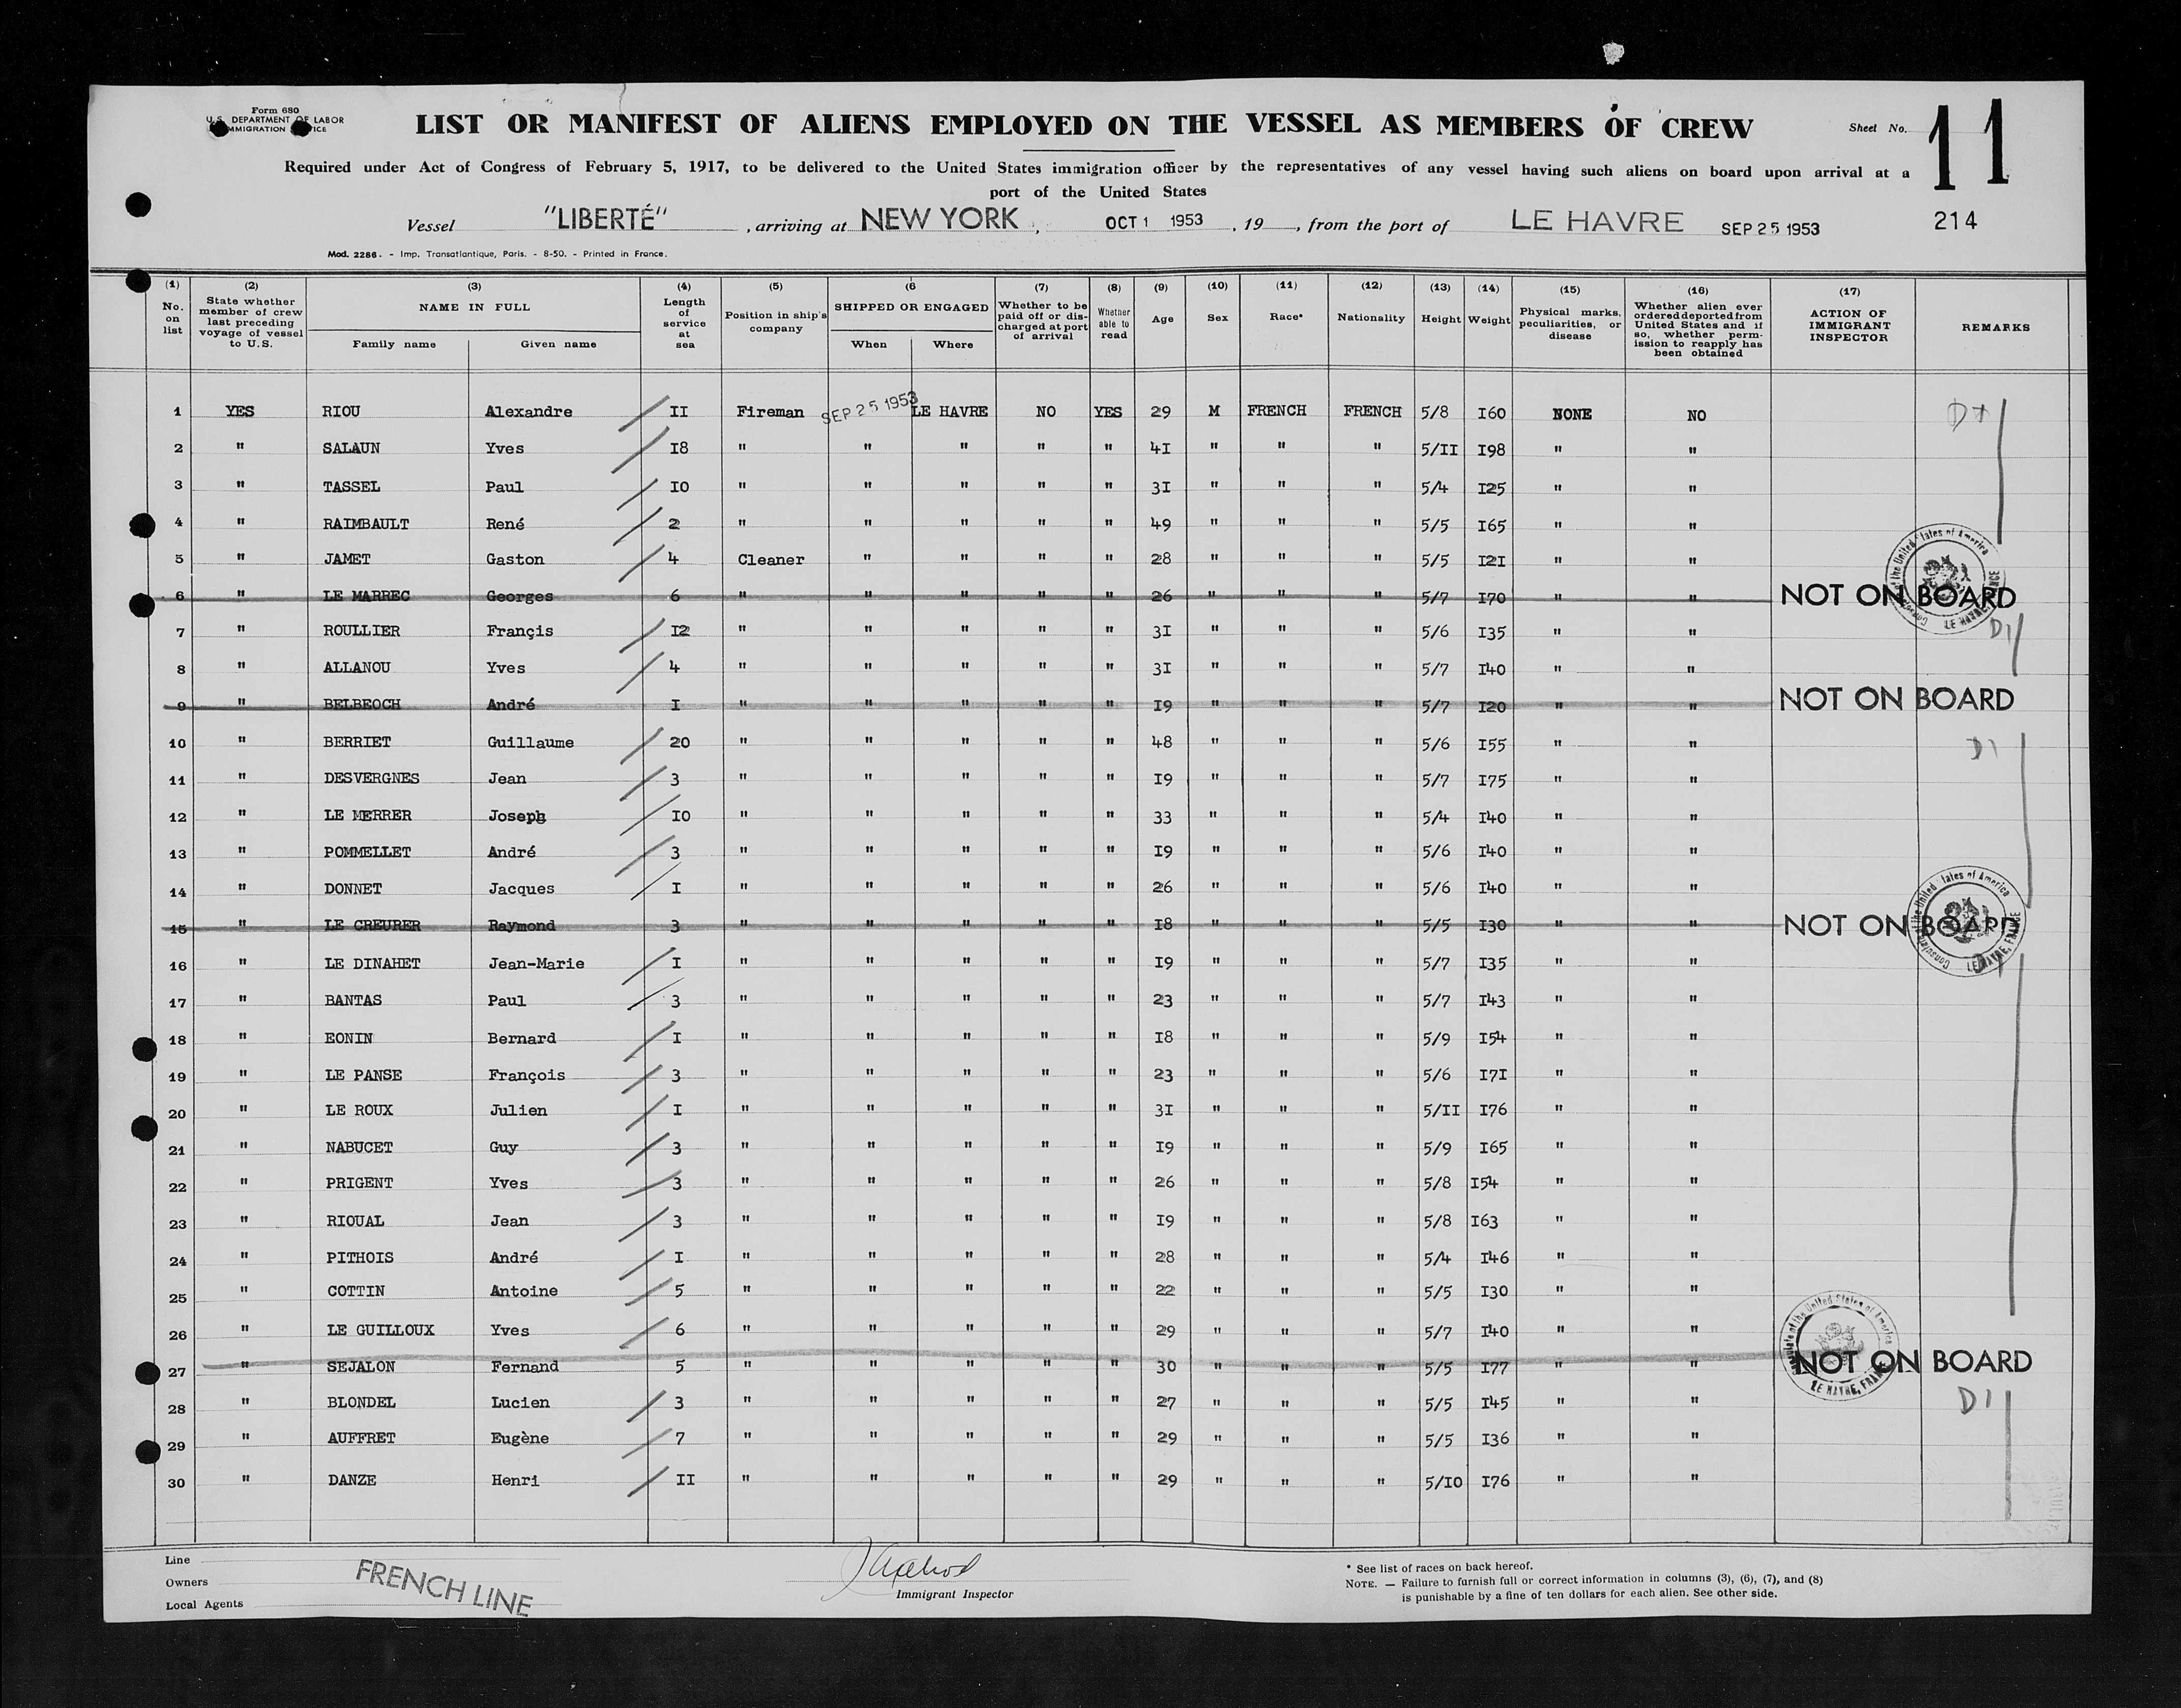 Form 680
U.S. DEPARTMENT OF LABOR
IMMIGRATION SERVICE
LIST OR MANIFEST OF ALIENS EMPLOYED ON THE VESSEL AS MEMBERS OF CREW
Sheet No. 11
Required under Act of Congress of February 5, 1917, to be delivered to the United States immigration officer by the representatives of any vessel having such aliens on board upon arrival at a
port of the United States
Vessel "LIBERTÉ", arriving at NEW YORK, OCT 1 1953, 19, from the port of LE HAVRE SEP 25 1953 214
Mod. 2286. - Imp. Transatlantique, Paris. - 8-50. - Printed in France.
(1) No. on list (2) State whether member of crew last preceding voyage of vessel to U.S. (3) NAME IN FULL Family name Given name (4) Length of service at sea (5) Position in ship's company (6 SHIPPED OR ENGAGED When Where (7) Whether to be paid off or discharged at port of arrival (8) Whether able to read (9) Age (10) Sex (11) Race* (12) Nationality (13) Height (14) Weight (15) Physical marks, peculiarities, or disease (16) Whether alien ever ordered deported from United States and if so, whether permission to reapply has been obtained (17) ACTION OF IMMIGRANT INSPECTOR REMARKS
1 YES RIOU Alexandre II Fireman SEP 25 1953 LE HAVRE NO YES 29 M FRENCH FRENCH 5/8 I60 NONE NO
2 " SALAUN Yves I8 " " " " " 4I " " " 5/II I98 " "
3 " TASSEL Paul I0 " " " " " 3I " " " 5/4 I25 " "
4 " RAIMBAULT René 2 " " " " " 49 " " " 5/5 I65 " "
5 " JAMET Gaston 4 Cleaner " " " " 28 " " " 5/5 I2I " "
6 " LE MARREC Georges 6 " " " " " 26 " " " 5/7 I70 " " NOT ON BOARD
7 " ROULLIER Françis I2 " " " " " 3I " " " 5/6 I35 " " D1
8 " ALLANOU Yves 4 " " " " " 3I " " " 5/7 I40 " "
9 " BELBEOCH André I " " " " " I9 " " " 5/7 I20 " " NOT ON BOARD
10 " BERRIET Guillaume 20 " " " " " 48 " " " 5/6 I55 " " D1
11 " DESVERGNES Jean 3 " " " " " I9 " " " 5/7 I75 " "
12 " LE MERRER Joseph I0 " " " " " 33 " " " 5/4 I40 " "
13 " POMMELLET André 3 " " " " " I9 " " " 5/6 I40 " "
14 " DONNET Jacques I " " " " " 26 " " " 5/6 I40 " "
15 " LE CREURER Raymond 3 " " " " " I8 " " " 5/5 I30 " " NOT ON BOARD
16 " LE DINAHET Jean-Marie I " " " " " I9 " " " 5/7 I35 " " D1
17 " BANTAS Paul 3 " " " " " 23 " " " 5/7 I43 " "
18 " EONIN Bernard I " " " " " I8 " " " 5/9 I54 " "
19 " LE PANSE François 3 " " " " " 23 " " " 5/6 I7I " "
20 " LE ROUX Julien I " " " " " 3I " " " 5/II I76 " "
21 " NABUCET Guy 3 " " " " " I9 " " " 5/9 I65 " "
22 " PRIGENT Yves 3 " " " " " 26 " " " 5/8 I54 " "
23 " RIOUAL Jean 3 " " " " " I9 " " " 5/8 I63 " "
24 " PITHOIS André I " " " " " 28 " " " 5/4 I46 " "
25 " COTTIN Antoine 5 " " " " " 22 " " " 5/5 I30 " "
26 " LE GUILLOUX Yves 6 " " " " " 29 " " " 5/7 I40 " "
27 " SEJALON Fernand 5 " " " " " 30 " " " 5/5 I77 " " NOT ON BOARD
28 " BLONDEL Lucien 3 " " " " " 27 " " " 5/5 I45 " " D1
29 " AUFFRET Eugène 7 " " " " " 29 " " " 5/5 I36 " "
30 " DANZE Henri II " " " " " 29 " " " 5/I0 I76 " "
Consulate of the United States of America LE HAVRE, FRANCE
Consulate of the United States of America LE HAVRE, FRANCE
Consulate of the United States of America LE HAVRE, FRANCE
Line
Owners FRENCH LINE
Local Agents
Immigrant Inspector
* See list of races on back hereof.
NOTE. — Failure to furnish full or correct information in columns (3), (6), (7), and (8)
is punishable by a fine of ten dollars for each alien. See other side.